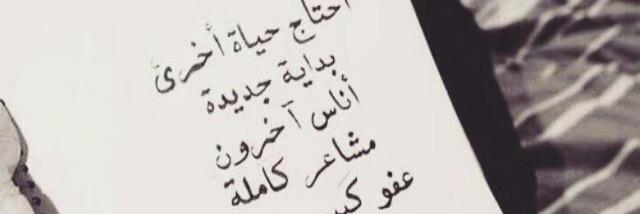 أحتاج حياة أخرى
بداية جديدة
أناس آخرون
مشاعر كاملة
عفو